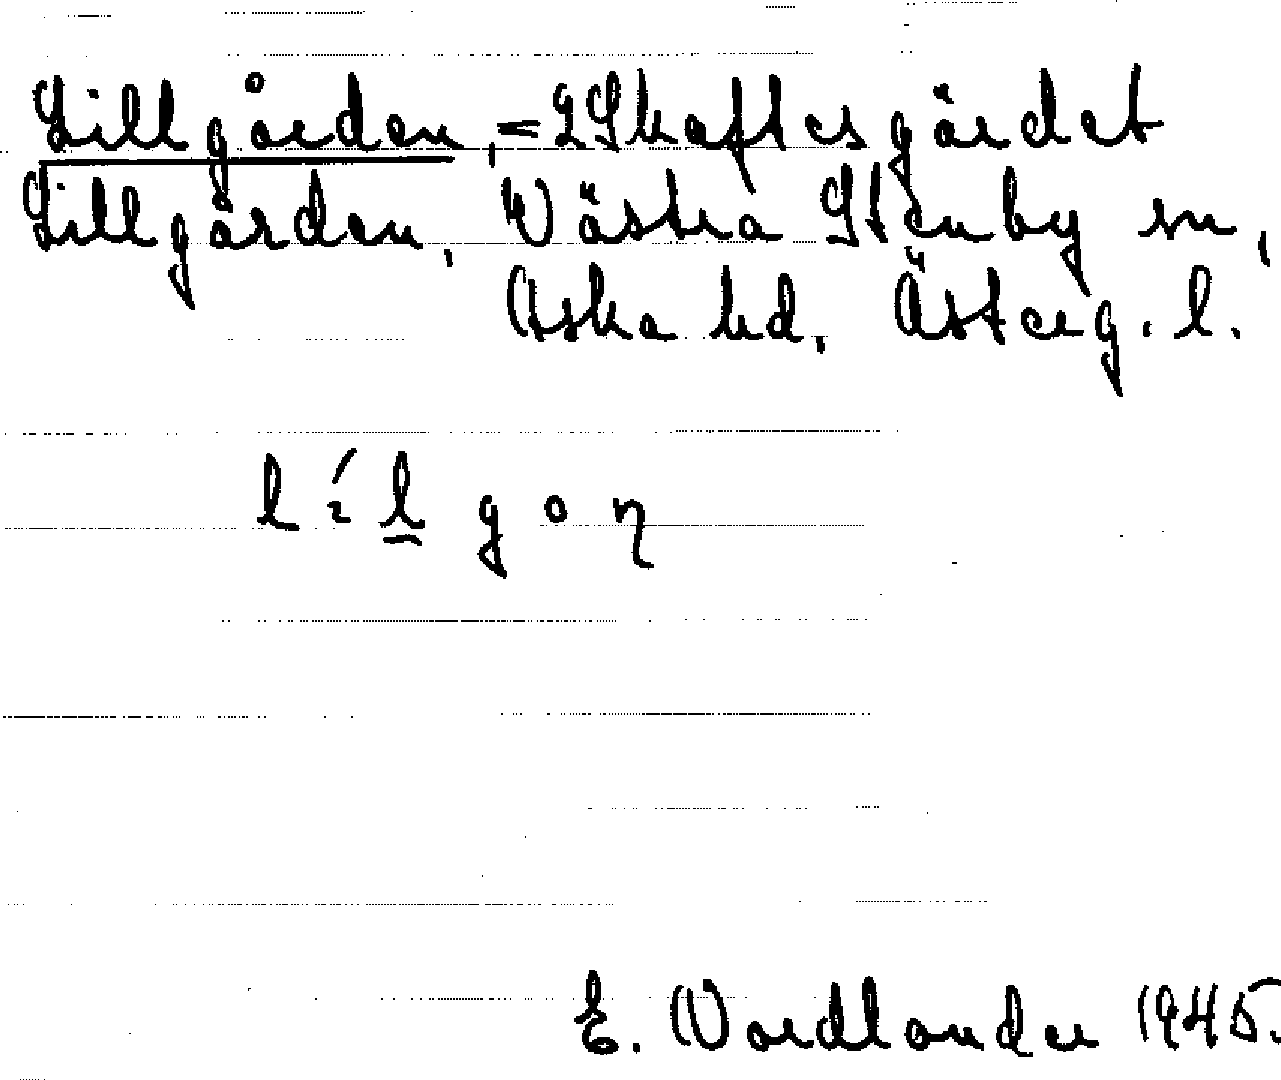 Lillgården, = 2 Skaftesgärdet
Lillgården, Västra Stenby sn,
Aska hd, Österg. l.
lí̵l̲gon
E. Nordlander 1945.